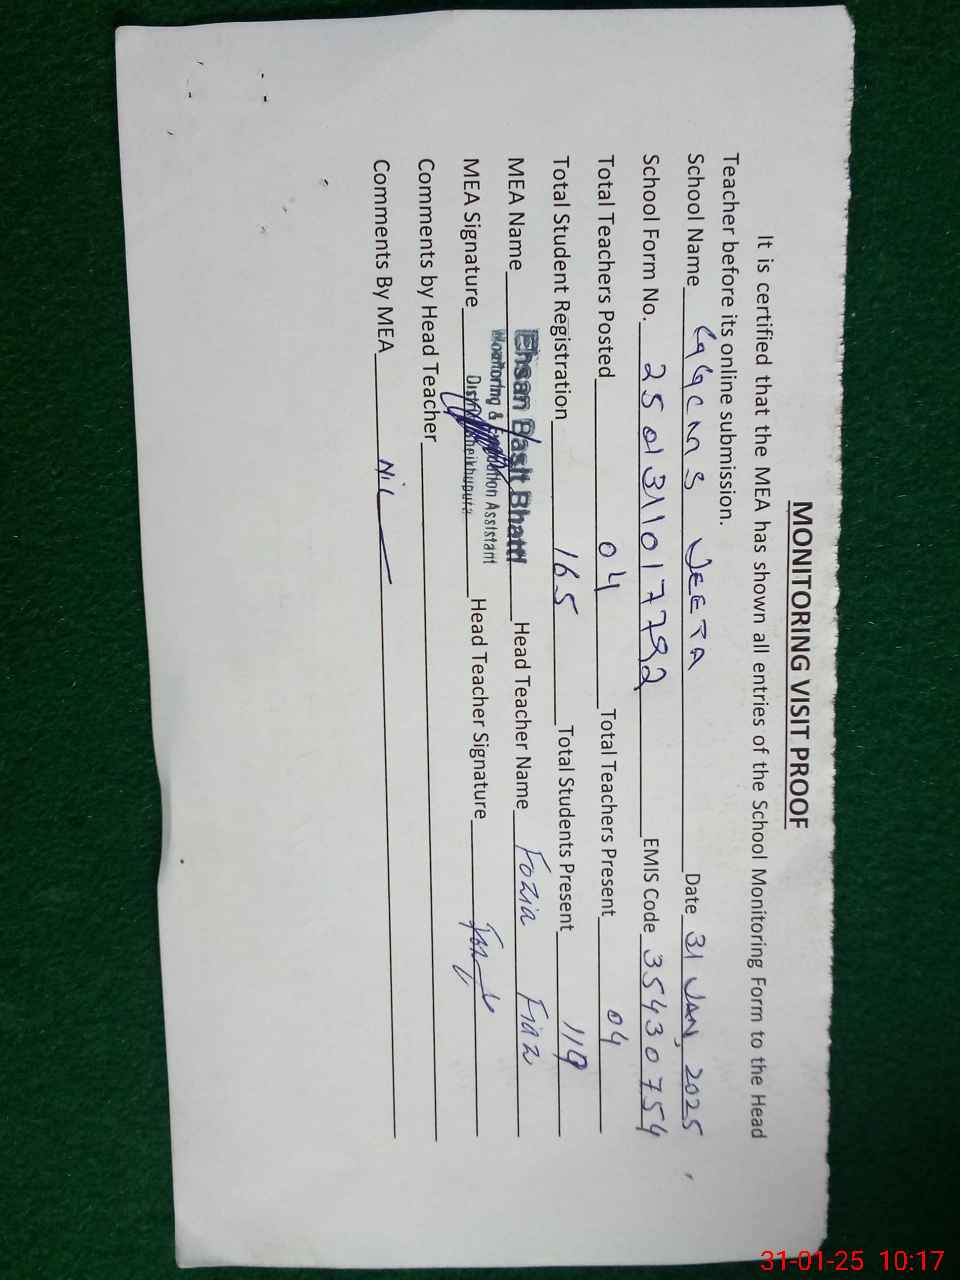 MONITORING VISIT PROOF
It is certified that the MEA has shown all entries of the School Monitoring Form to the Head
Teacher before its online submission.
School Name GGCMS JEETA Date 31 JAN, 2025
School Form No. 2501311017792 EMIS Code 35430754
Total Teachers Posted 04 Total Teachers Present 04
Total Student Registration 165 Total Students Present 119
MEA Name Ehsan Basit Bhatti Head Teacher Name Fozia Fiaz
Monitoring & Assistant
MEA Signature District Sheikhupura Head Teacher Signature
Comments by Head Teacher
Comments By MEA NIL
31-01-25 10:17